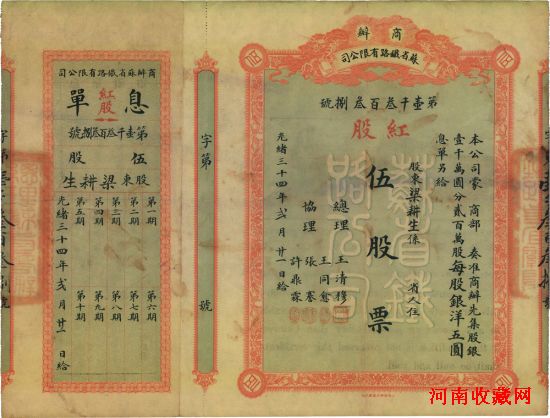 商辦
蘇省鐵路有限公司
第壹千叁百叁捌號
紅股
本公司蒙 商部 奏准商辦先集股銀
壹千萬圓分貳百萬股每股銀洋五圓
息單另給
股東梁耕生係 省人住
伍股票
總理 王清穆
協理 王同愈
張謇
許鼎霖
光緒三十四年 貳月 廿一日給
蘇省鐵路公司
字第 號
商辦蘇省鐵路有限公司
息單
紅股
第壹千叁百叁捌號
伍股
股東梁耕生
第一期 第六期
第二期 第七期
第三期 第八期
第四期 第九期
第五期 第十期
光緒三十四年 貳月 廿一日給
河南收藏网